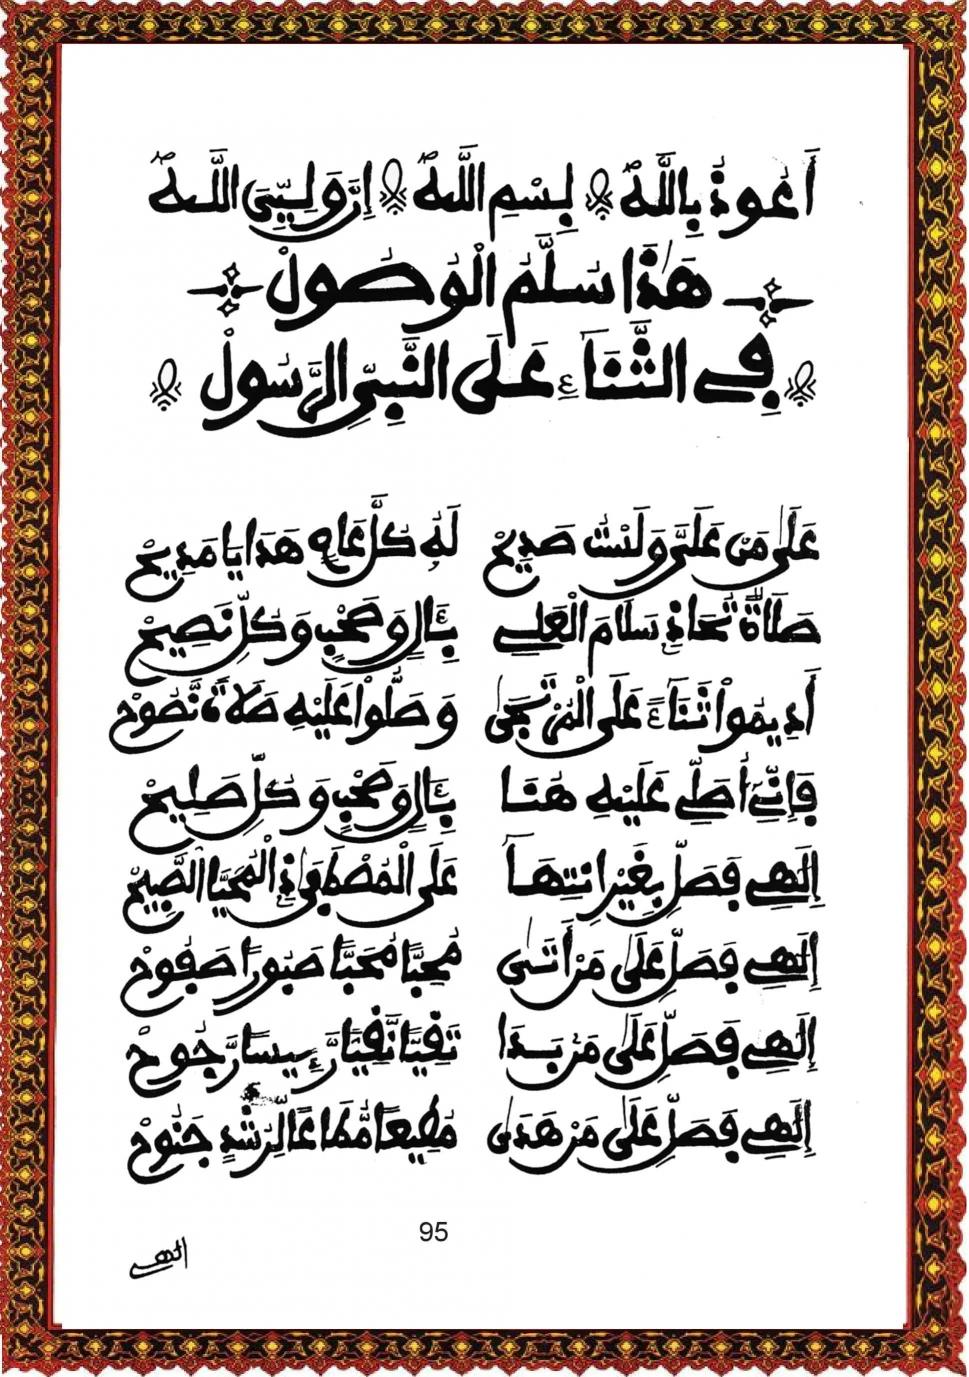 أَعُوذُ بِاللَّهِ بِسْمِ اللَّهِ إِنَّ وَلِيِّيَ اللَّهُ
هَذَا سُلَّمُ الْوُصُولْ
فِي الثَّنَاءِ عَلَى النَّبِيِّ الرَّسُولْ
عَلَى مَنْ عَلَيَّ وَلَنْتُ صَدِيحْ لَهُ كُلَّ عَامٍ هَدَايَا مَدِيحْ
صَلَاةٌ تُحَاذِي سَلَامَ الْعَلِي بِآلٍ وَصَحْبٍ وَكُلِّ نَصِيحْ
أَدِيمُوا ثَنَاءً عَلَى الْمُرْتَجَى وَصَلُّوا عَلَيْهِ صَلَاةً نَّصُوحْ
فَإِنِّي أُصَلِّي عَلَيْهِ هُنَا بِآلٍ وَصَحْبٍ وَكُلِّ صَلِيحْ
إِلَهِي فَصَلِّ بِغَيْرِ انْتِهَا عَلَى الْمُصْطَفَى ذِي الْمُحَيَّا الصَّبِيحْ
إِلَهِي فَصَلِّ عَلَى مَنْ أَتَى مُحِبًّا مُحَبًّا صَبُورًا صَفُوحْ
إِلَهِي فَصَلِّ عَلَى مَنْ بَدَا تَقِيًّا نَّقِيًّا رَّئِيسًا رَّجُوحْ
إِلَهِي فَصَلِّ عَلَى مَنْ هَدَى مُطِيعًا مُّطَاعًا لِّرُشْدٍ جَنُوحْ
95
إلهي